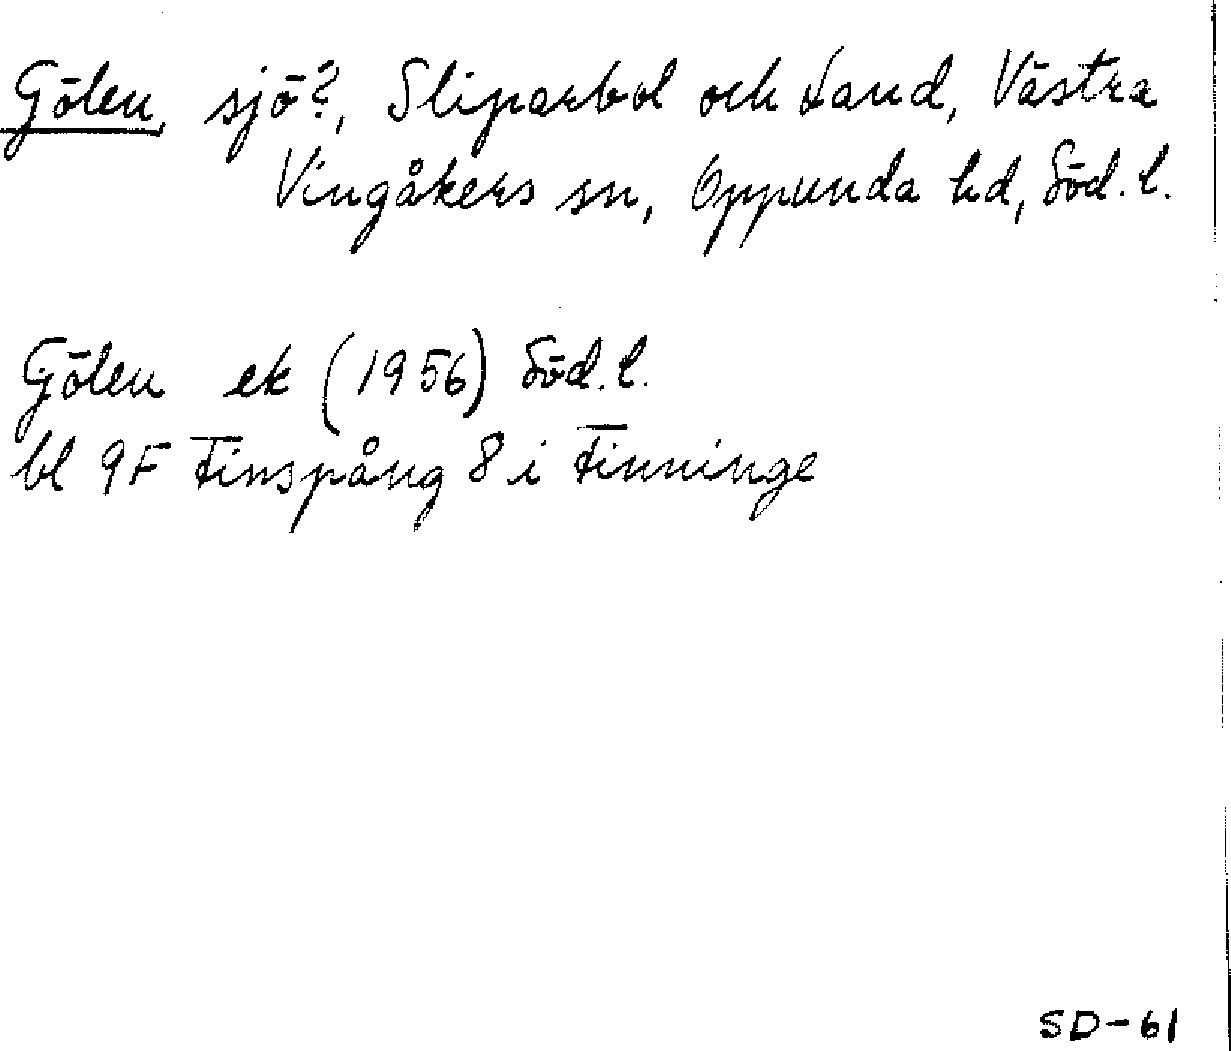 Gölen, sjö?, Sliparbol och Sand, Västra
Vingåkers sn, Oppunda hd, Söd. l.
Gölen ek (1956) Söd. l.
bl 9F Finspång 8 i Finninge
SD-61